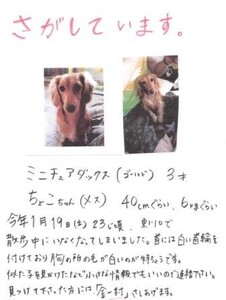 さがしています。
ミニチュアダックス(ゴールド) 3才
ちょこちゃん(メス) 40cmぐらい、6kgぐらい
今年1月19日(土)23じ頃、東川口で
散歩中にいなくなってしまいました。首には白い首輪を
付けており胸の所の毛が白いのが特ちょうです。
似た子を見かけたなど小さな情報でもいいので連絡下さい。
見つけて下さった方には、「金一封」さしあげます。